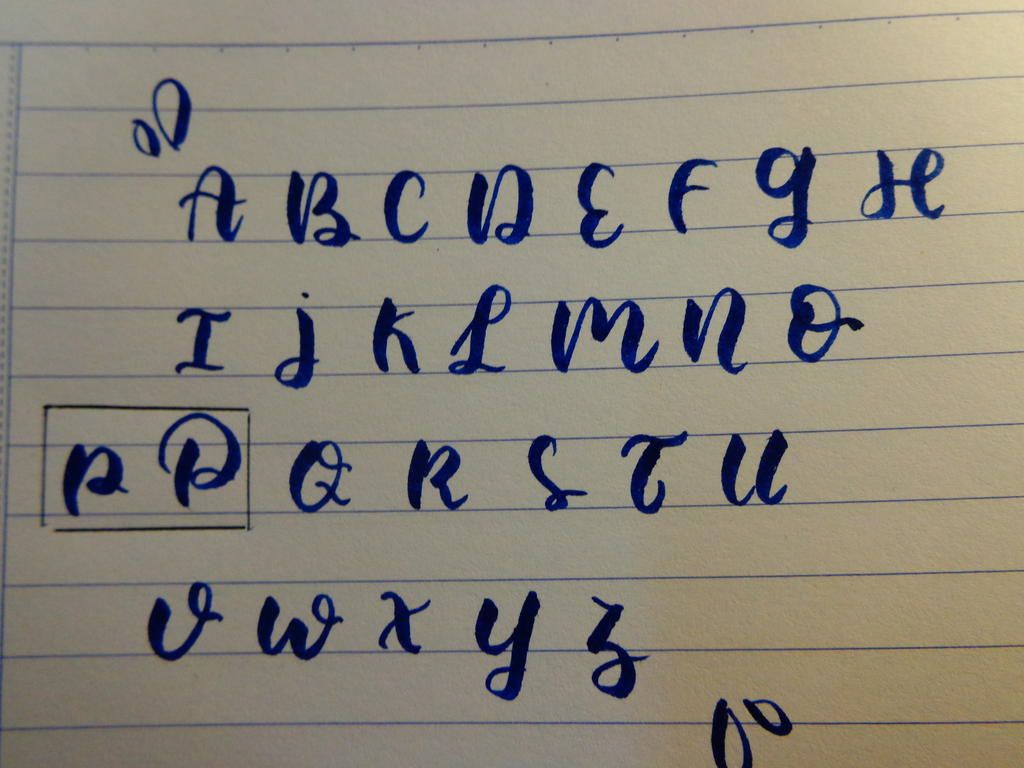 A B C D E F G H
I J K L M N O
P P Q R S T U
V W X Y Z